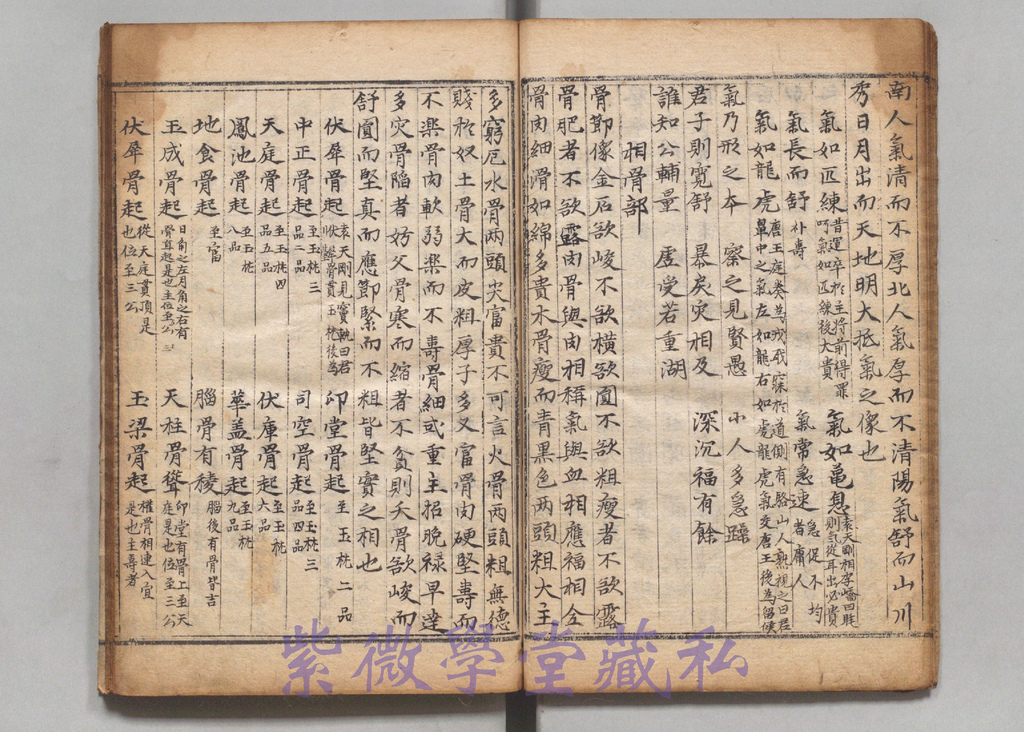 南人氣清而不厚北人氣厚而不清陽氣舒而山川
秀日月出而天地明大抵氣之像也
氣如匹練 昔運卒於主將前得罪呵氣如匹練後大貴 氣如亀息 袁天剛相李嶠曰睡則氣從耳出必貴
氣長而舒 朴壽 氣常急速 急促不均者庸人
氣如龍虎 唐王庭奏為戎寐於道側有駱山人熟視之曰君鼻中之氣左如龍右如虎龍虎氣交唐王後為留候
氣乃形之本 察之見賢愚 小人多急躁
君子則寬舒 暴戾灾相及 深沉福有餘
誰知公輔量 虛受若重湖
相骨部
骨節像金石欲峻不欲橫欲圓不欲粗瘦者不欲露
骨肥者不欲露肉骨與肉相稱氣與血相應福相全
骨肉細滑如綿多貴木骨瘦而青黑色两頭粗大主
多窮厄水骨两頭尖富貴不可言火骨两頭粗無德
賤於奴土骨大而皮粗厚子多又富骨肉硬堅壽而
不楽骨肉軟弱楽而不壽骨細或重主招晚祿早達
多灾骨陷者妨父骨寒而縮者不貧則夭骨欲峻而
舒圓而堅真而應節緊而不粗皆堅實之相也
伏犀骨起 袁天剛見竇軌曰君伏犀骨貫玉枕後為 印堂骨起 至玉枕二品
中正骨起 至玉枕三品二品 司空骨起 至玉枕三品四品
天庭骨起 至玉枕四品五品 伏庫骨起 至玉枕六品
鳳池骨起 至玉枕八品 華盖骨起 至玉枕九品
地食骨起 至富 腦骨有稜 腦後有骨皆吉
玉成骨起 日角之左月角之右有骨直起是也主位至公 天柱骨聳 印堂有骨上至天庭是也位至三公
伏犀骨起 從天庭貫頂是也位至三公 玉梁骨起 權骨相連入宜是也主壽者
紫微學堂藏私